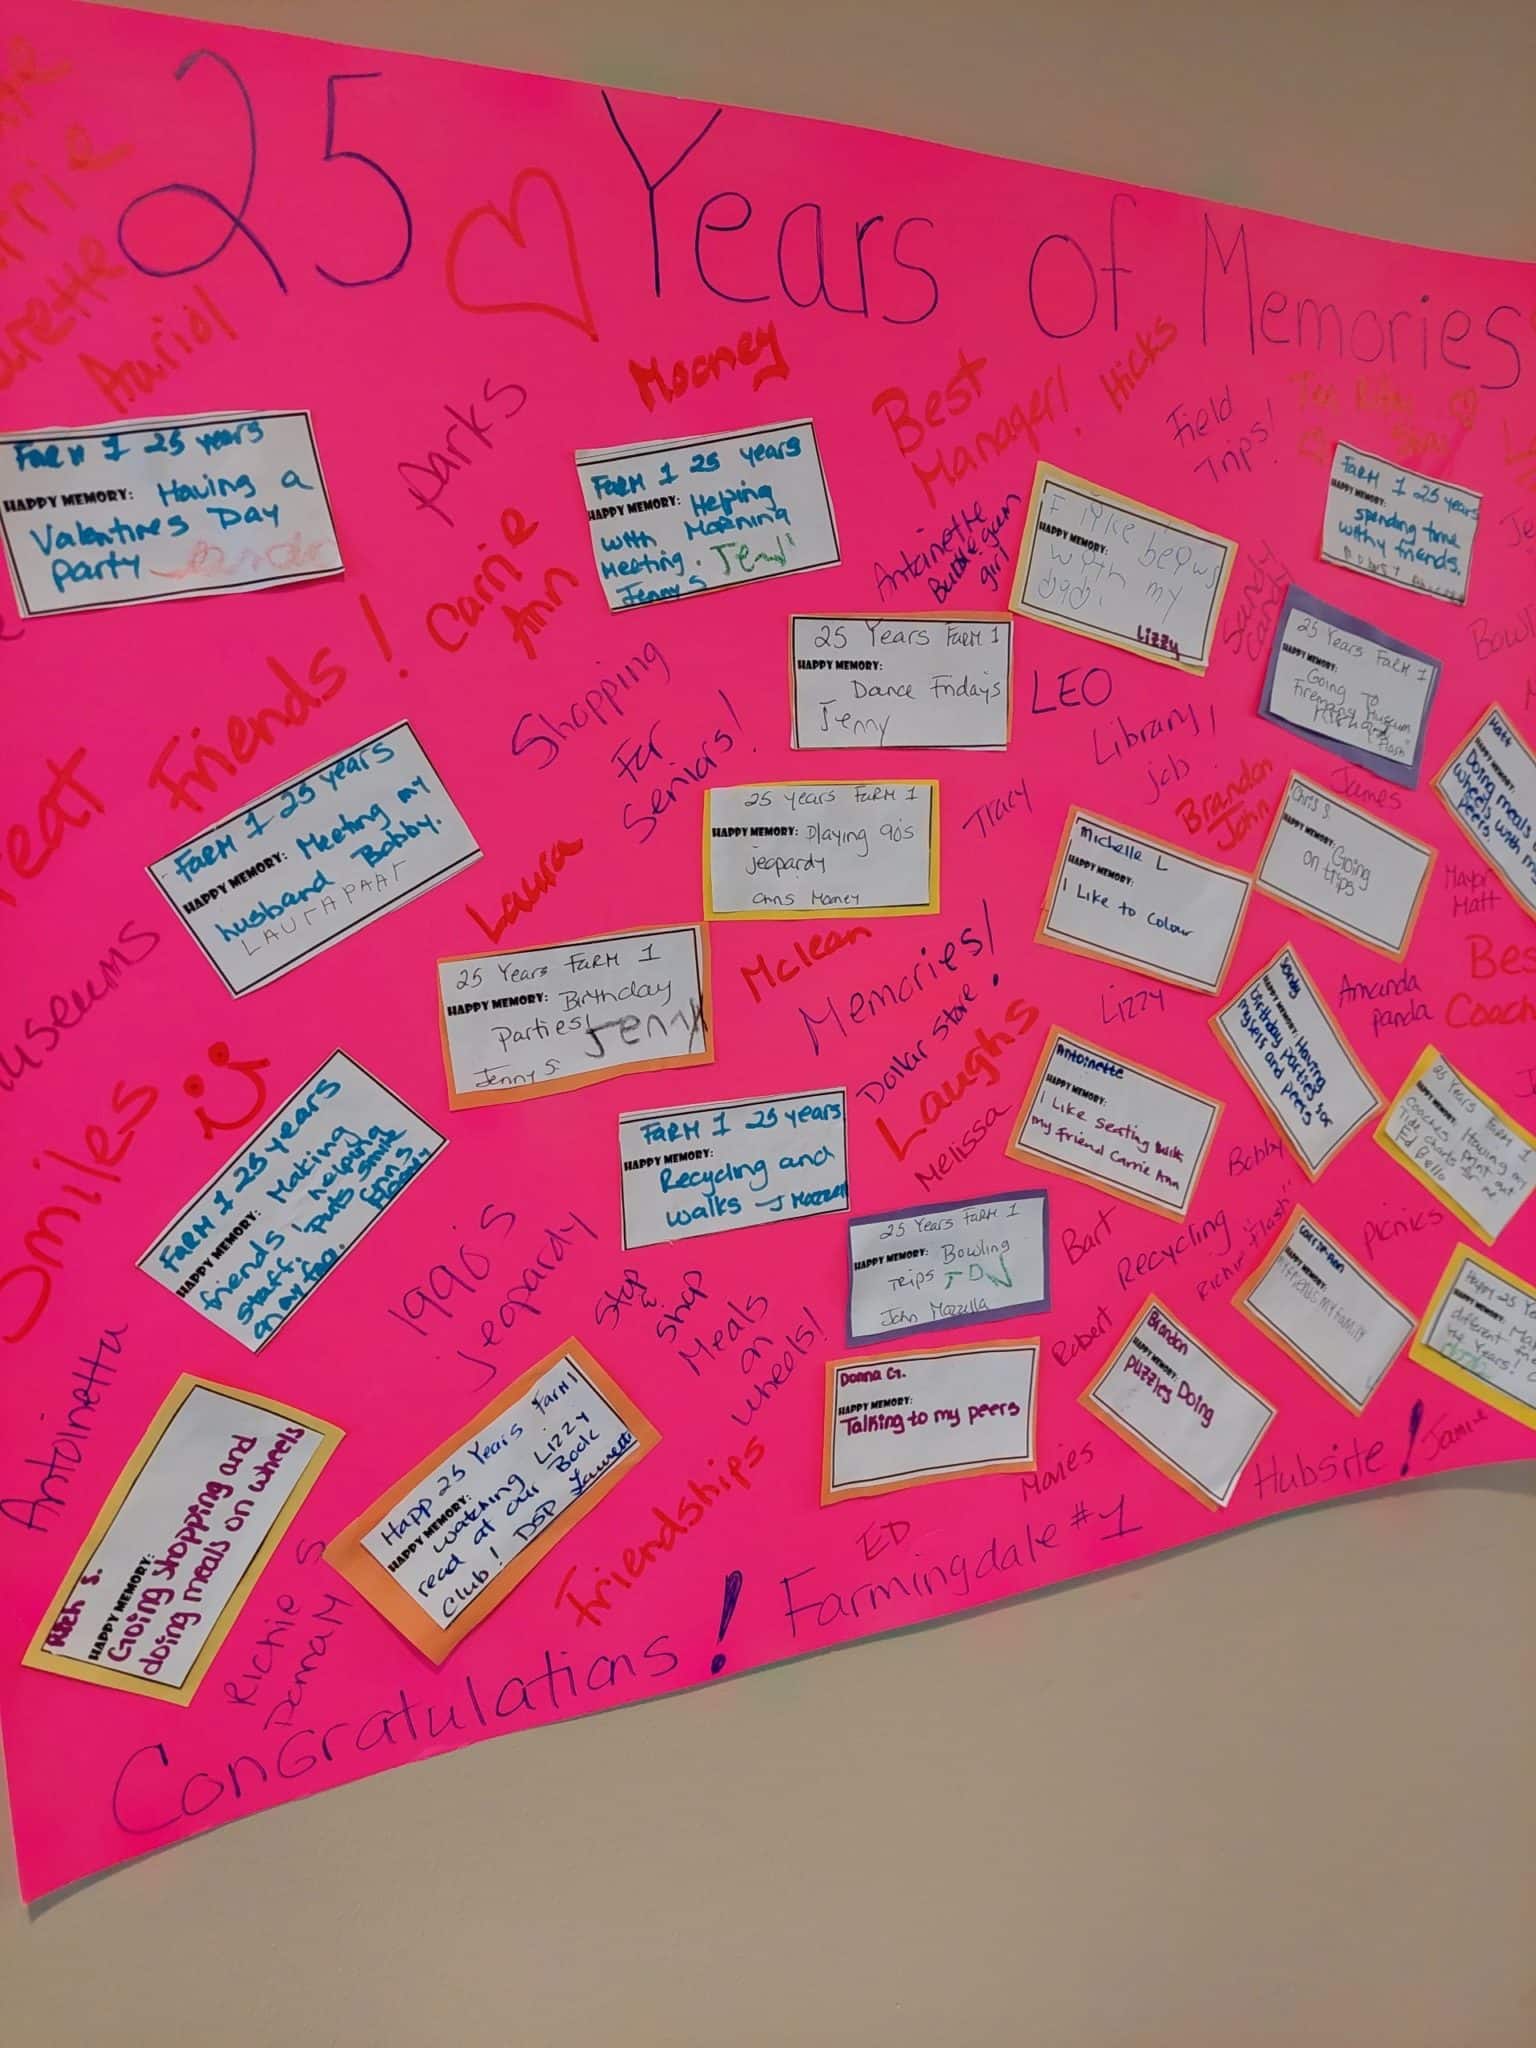 25 Years of Memories
Auriol
Mooney
Parks
Best
Manager!
Hicks
Field
Trips!
FARM 1 25 years
HAPPY MEMORY: Having a
Valentines Day
party
FARM 1 25 years
HAPPY MEMORY: Helping
with Morning
Meeting.
Jenny S
Carrie
Ann
Antoinette
Bubble gum
girl
HAPPY MEMORY:
with my
Lizzy
FARM 1 25 years
HAPPY MEMORY:
spending time
with friends.
Friends!
Shopping
For
Seniors!
25 Years FARM 1
HAPPY MEMORY:
Dance Fridays
Jenny
LEO
Library,
job
Brandon
John
Sandy
Candy
25 Years FARM 1
HAPPY MEMORY:
Going To
Museum
"Flash"
James
FARM 1 25 years
HAPPY MEMORY: Meeting my
husband Bobby.
LAURA PAAR
Laura
25 years FARM 1
HAPPY MEMORY: Playing 90's
jeopardy
Chris Mooney
Tracy
Michelle L
HAPPY MEMORY:
I Like to colour
Chris S.
HAPPY MEMORY: Going
on trips
Matt
HAPPY MEMORY:
Doing meals
wheels with my
peers.
Mayor
Matt
25 Years FARM 1
HAPPY MEMORY: Birthday
Parties!
Jenny
Jenny S.
Mclean
Memories!
Dollar Store!
Laughs
Melissa
Lizzy
Antoinette
HAPPY MEMORY:
I Like seating
my friend Carrie Ann
Sandy
HAPPY MEMORY: Having
birthday parties for
myself and peers
Amanda
Panda
Coach
Smiles
FARM 1 25 years
HAPPY MEMORY: Making
friends, helping
staff. puts smile
on my face.
FARM 1 25 years
HAPPY MEMORY:
Recycling and
walks J Mazzella
25 Years FARM 1
HAPPY MEMORY: Bowling
Trips
John Mazzella
Bart
Recycling
Bobby
Richie "Flash"
Robert
Picnics
25 Years FARM 1
HAPPY MEMORY: Having my
coaches print out
Tide charts for me
Ed Bello
Antoinette
1990's
Jeopardy
Stop
&
Shop
Meals
on
Wheels!
Donna G.
HAPPY MEMORY:
Talking to my peers
Brandon
HAPPY MEMORY: Doing
puzzles
HAPPY MEMORY:
my family
Rich S.
HAPPY MEMORY:
Going Shopping and
doing meals on wheels
Happ 25 Years Farm 1
HAPPY MEMORY:
watching Lizzy
read at our Book
Club! DSP
Friendships
Movies
ED
Richie S
Donna M
Hubsite!
Jamie
Congratulations! Farmingdale #1